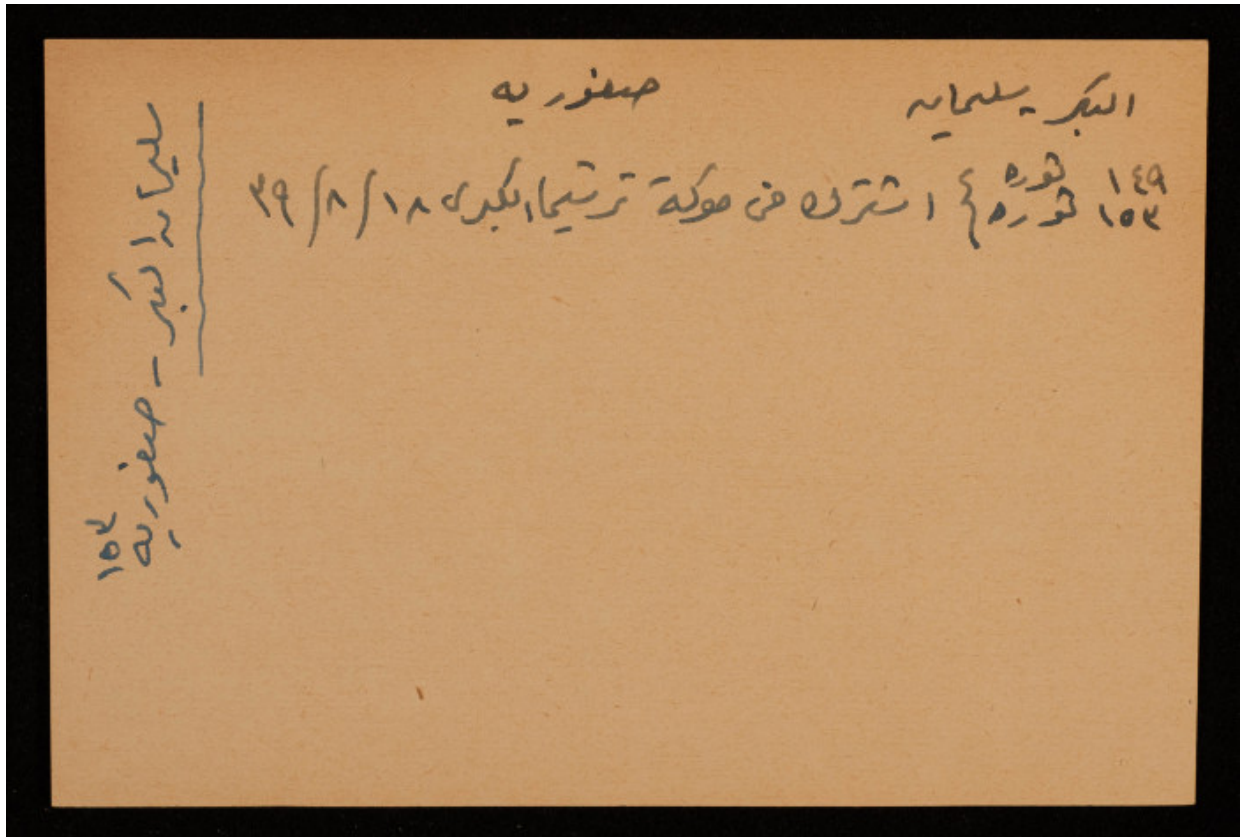 البكر - سليمان صفوريه
١٤٩ ثوره
١٥٣ ثوره } اشترك في معركة ترشيحا الكبرى ١٨/٨/٣٩
سليمان البكر - صفوريه
١٥٣